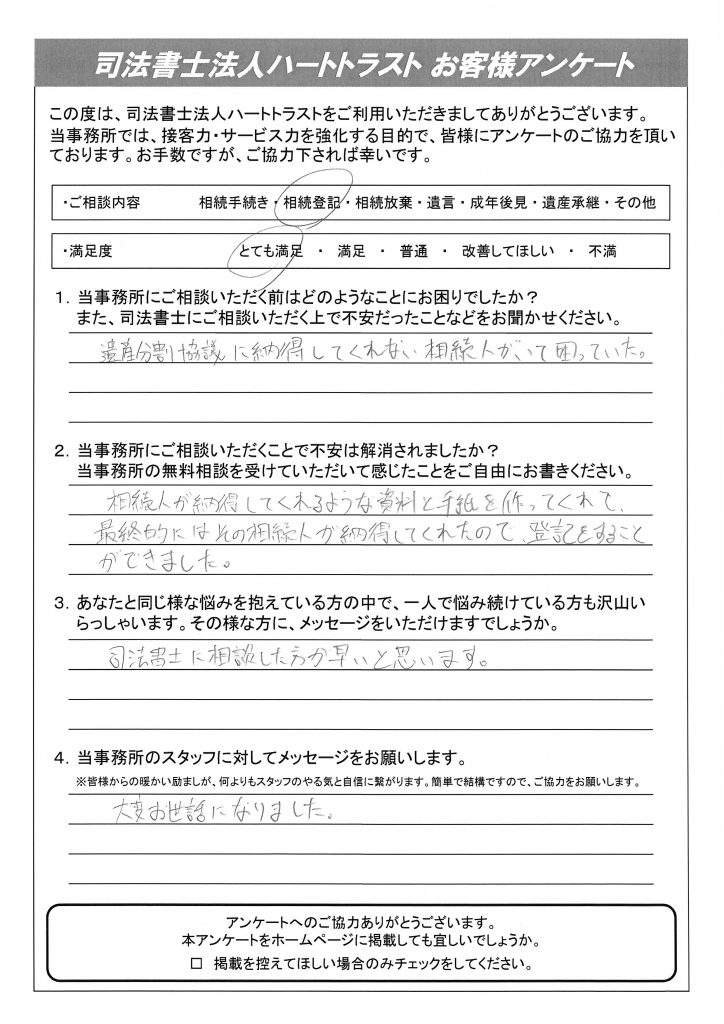 司法書士法人ハートトラスト お客様アンケート
この度は、司法書士法人ハートトラストをご利用いただきましてありがとうございます。
当事務所では、接客力・サービス力を強化する目的で、皆様にアンケートのご協力を頂い
ております。お手数ですが、ご協力下されば幸いです。
・ご相談内容 相続手続き・相続登記・相続放棄・遺言・成年後見・遺産承継・その他
・満足度 とても満足 ・ 満足 ・ 普通 ・ 改善してほしい ・ 不満
1．当事務所にご相談いただく前はどのようなことにお困りでしたか？
また、司法書士にご相談いただく上で不安だったことなどをお聞かせください。
遺産分割協議に納得してくれない相続人がいて困っていた。
2．当事務所にご相談いただくことで不安は解消されましたか？
当事務所の無料相談を受けていただいて感じたことをご自由にお書きください。
相続人が納得してくれるような資料と手紙を作ってくれて、
最終的にはその相続人が納得してくれたので、登記をすること
ができました。
3．あなたと同じ様な悩みを抱えている方の中で、一人で悩み続けている方も沢山い
らっしゃいます。その様な方に、メッセージをいただけますでしょうか。
司法書士に相談した方が早いと思います。
4．当事務所のスタッフに対してメッセージをお願いします。
※皆様からの暖かい励ましが、何よりもスタッフのやる気と自信に繋がります。簡単で結構ですので、ご協力をお願いします。
大変お世話になりました。
アンケートへのご協力ありがとうございます。
本アンケートをホームページに掲載しても宜しいでしょうか。
□ 掲載を控えてほしい場合のみチェックをしてください。